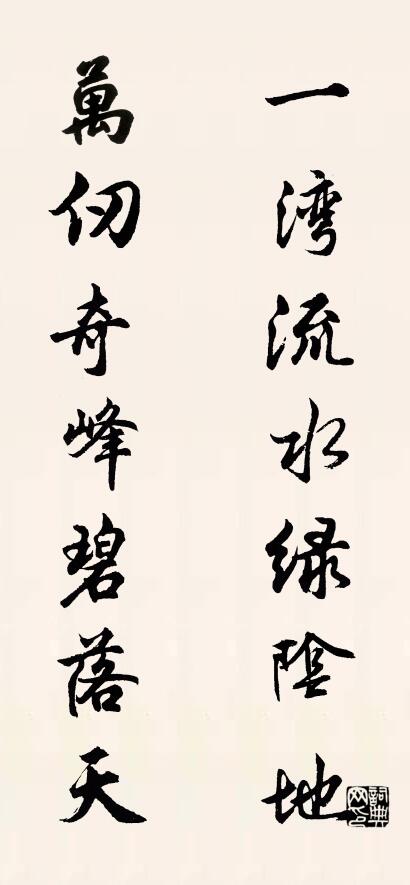 一湾流水緑陰地
萬仞奇峰碧落天
詞典網